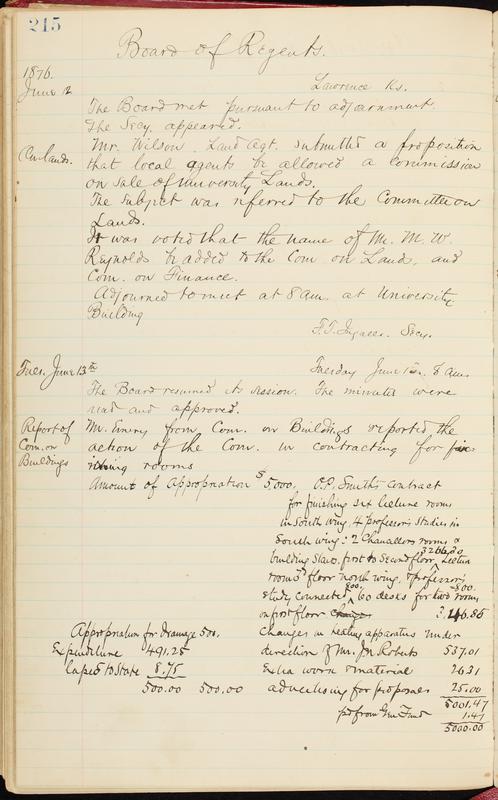 215
Board of Regents.
1876.
June 12
Lawrence Ks.
The Board met pursuant to adjournment.
The Secy. appeared.
On lands.
Mr. Wilson, Land Agt. submitted a proposition
that local agents be allowed a commission
on sale of University Lands.
The subject was referred to the Committee on
Lands.
It was voted that the name of Mr. M. W.
Reynolds be added to the Com. on Lands, and
Com. on Finance.
Adjourned to meet at 8 am. at University
Building
F. T. Ingalls. Secy.
Tues. June 13th
Tuesday June 8 am.
The Board resumed its session. The minutes were
read and approved.
Report of
Com. on
Buildings
Mr. Emery from Com. on Buildings reported the
action of the Com. in contracting for
rooms
Amount of Appropriation $5,000. O.P. Smith's contract
for finishing six lecture rooms
in South wing. 4 professor's studies in
South wing: 2 Chancellors rooms &
building Stairs. first to Second floor, Lecture
rooms 3d floor north wing. & Professor's
study connected 60 desks for two rooms
on first floor 3,
Appropriation for drainage 500.
Changes in heating apparatus under
Expenditure 491.25
direction of Mr. Roberts 537.01
lapsed to State 8.75
Extra work & material
500.00 500.00
advertising for proposals 25.00
5001.47
pd from Gen Fund 1.47
5000.00